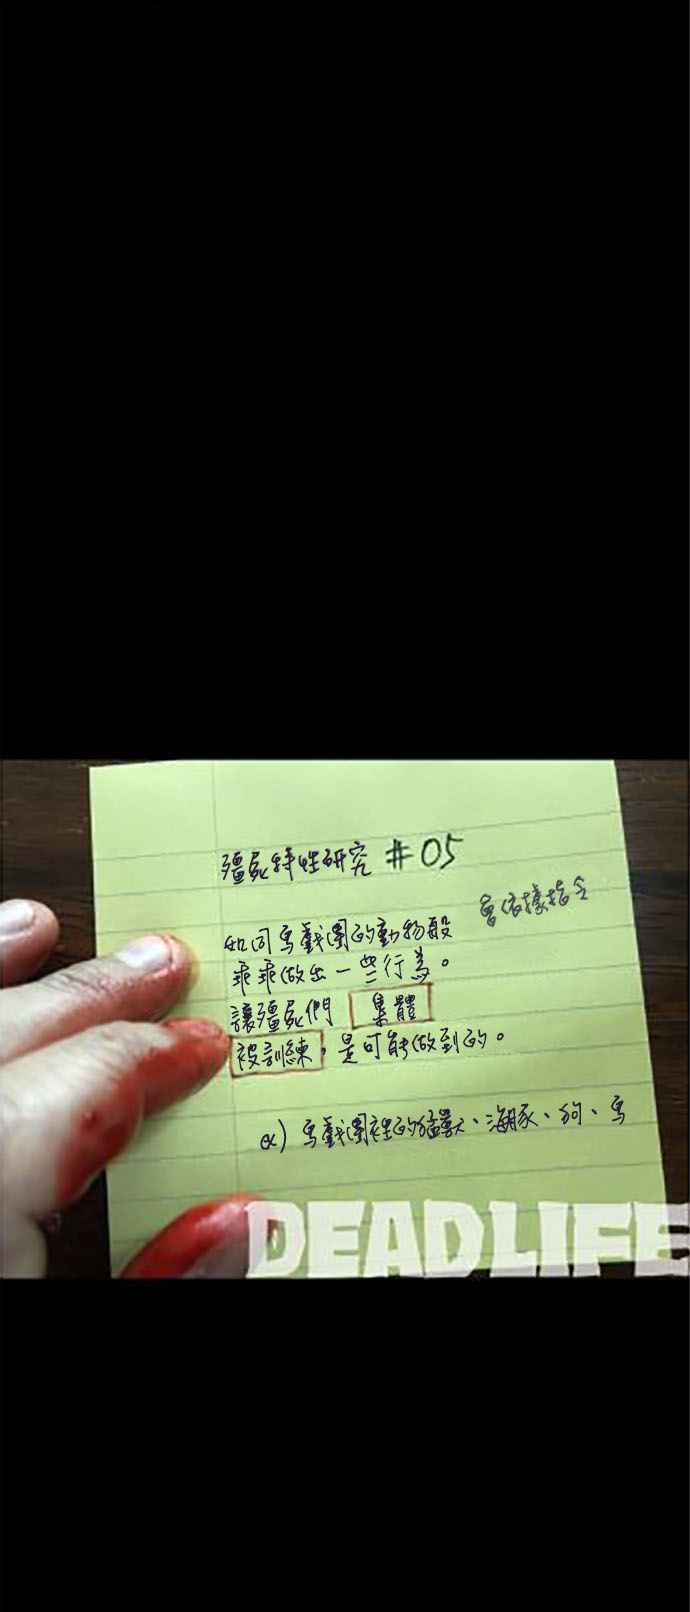 殭屍特性研究 #05
會依據指令
如同馬戲團的動物般
乖乖做出一些行為。
讓殭屍們 集體
被訓練，是可能做到的。
α) 馬戲團裡的猛獸、海豚、狗、馬
DEADLIFE